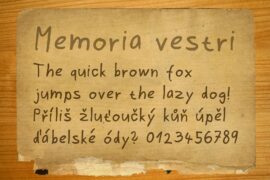 Memoria vestri
The quick brown fox
jumps over the lazy dog!
Příliš žluťoučký kůň úpěl
ďábelské ódy? 0123456789